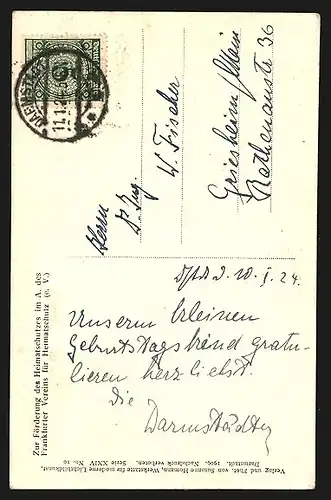 DARMSTADT
11.1.2
Herrn
Dr. Ing.
W. Fischer
Griesheim/Main
Rathenaustr 36
D/stadt d. 10. I. 24.
Unserm kleinen
Geburtstagskind gratu-
lieren herzlichst.
die
Darmstädter
Zur Förderung des Heimatschutzes im A. des
Frankfurter Vereins für Heimatschutz (e. V.)
Verlag und Phot. von Susanne Homann, Werkstätte für moderne Lichtbildkunst,
Darmstadt. 1909. Nachdruck verboten. Serie XXIV No. 10